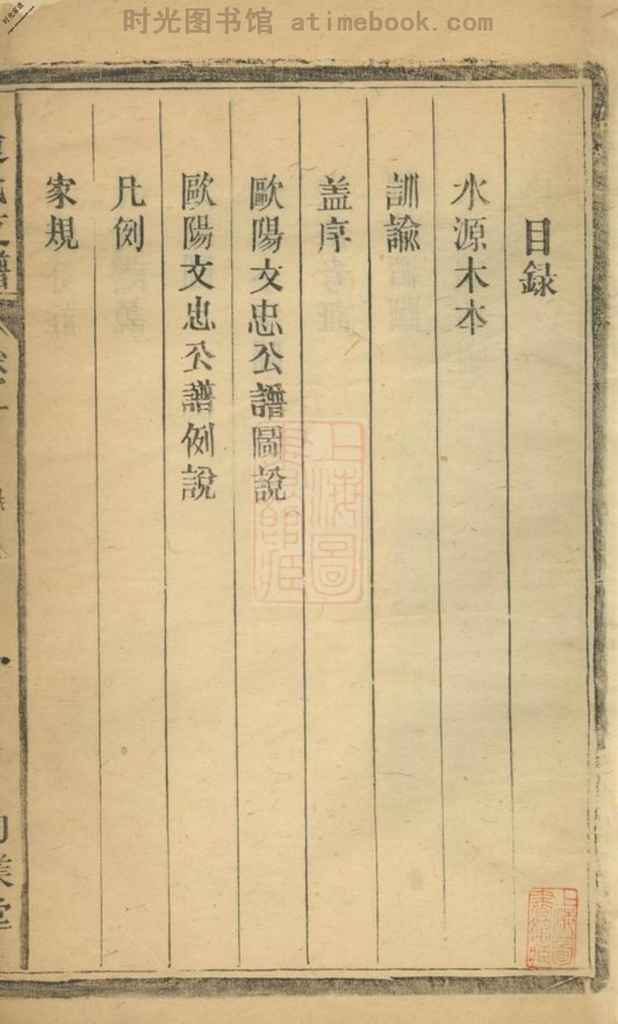 时光图书馆 atimebook.com
目録
水源木本
訓諭
盖序
歐陽文忠公譜圖說
歐陽文忠公譜例說
凡例
家規